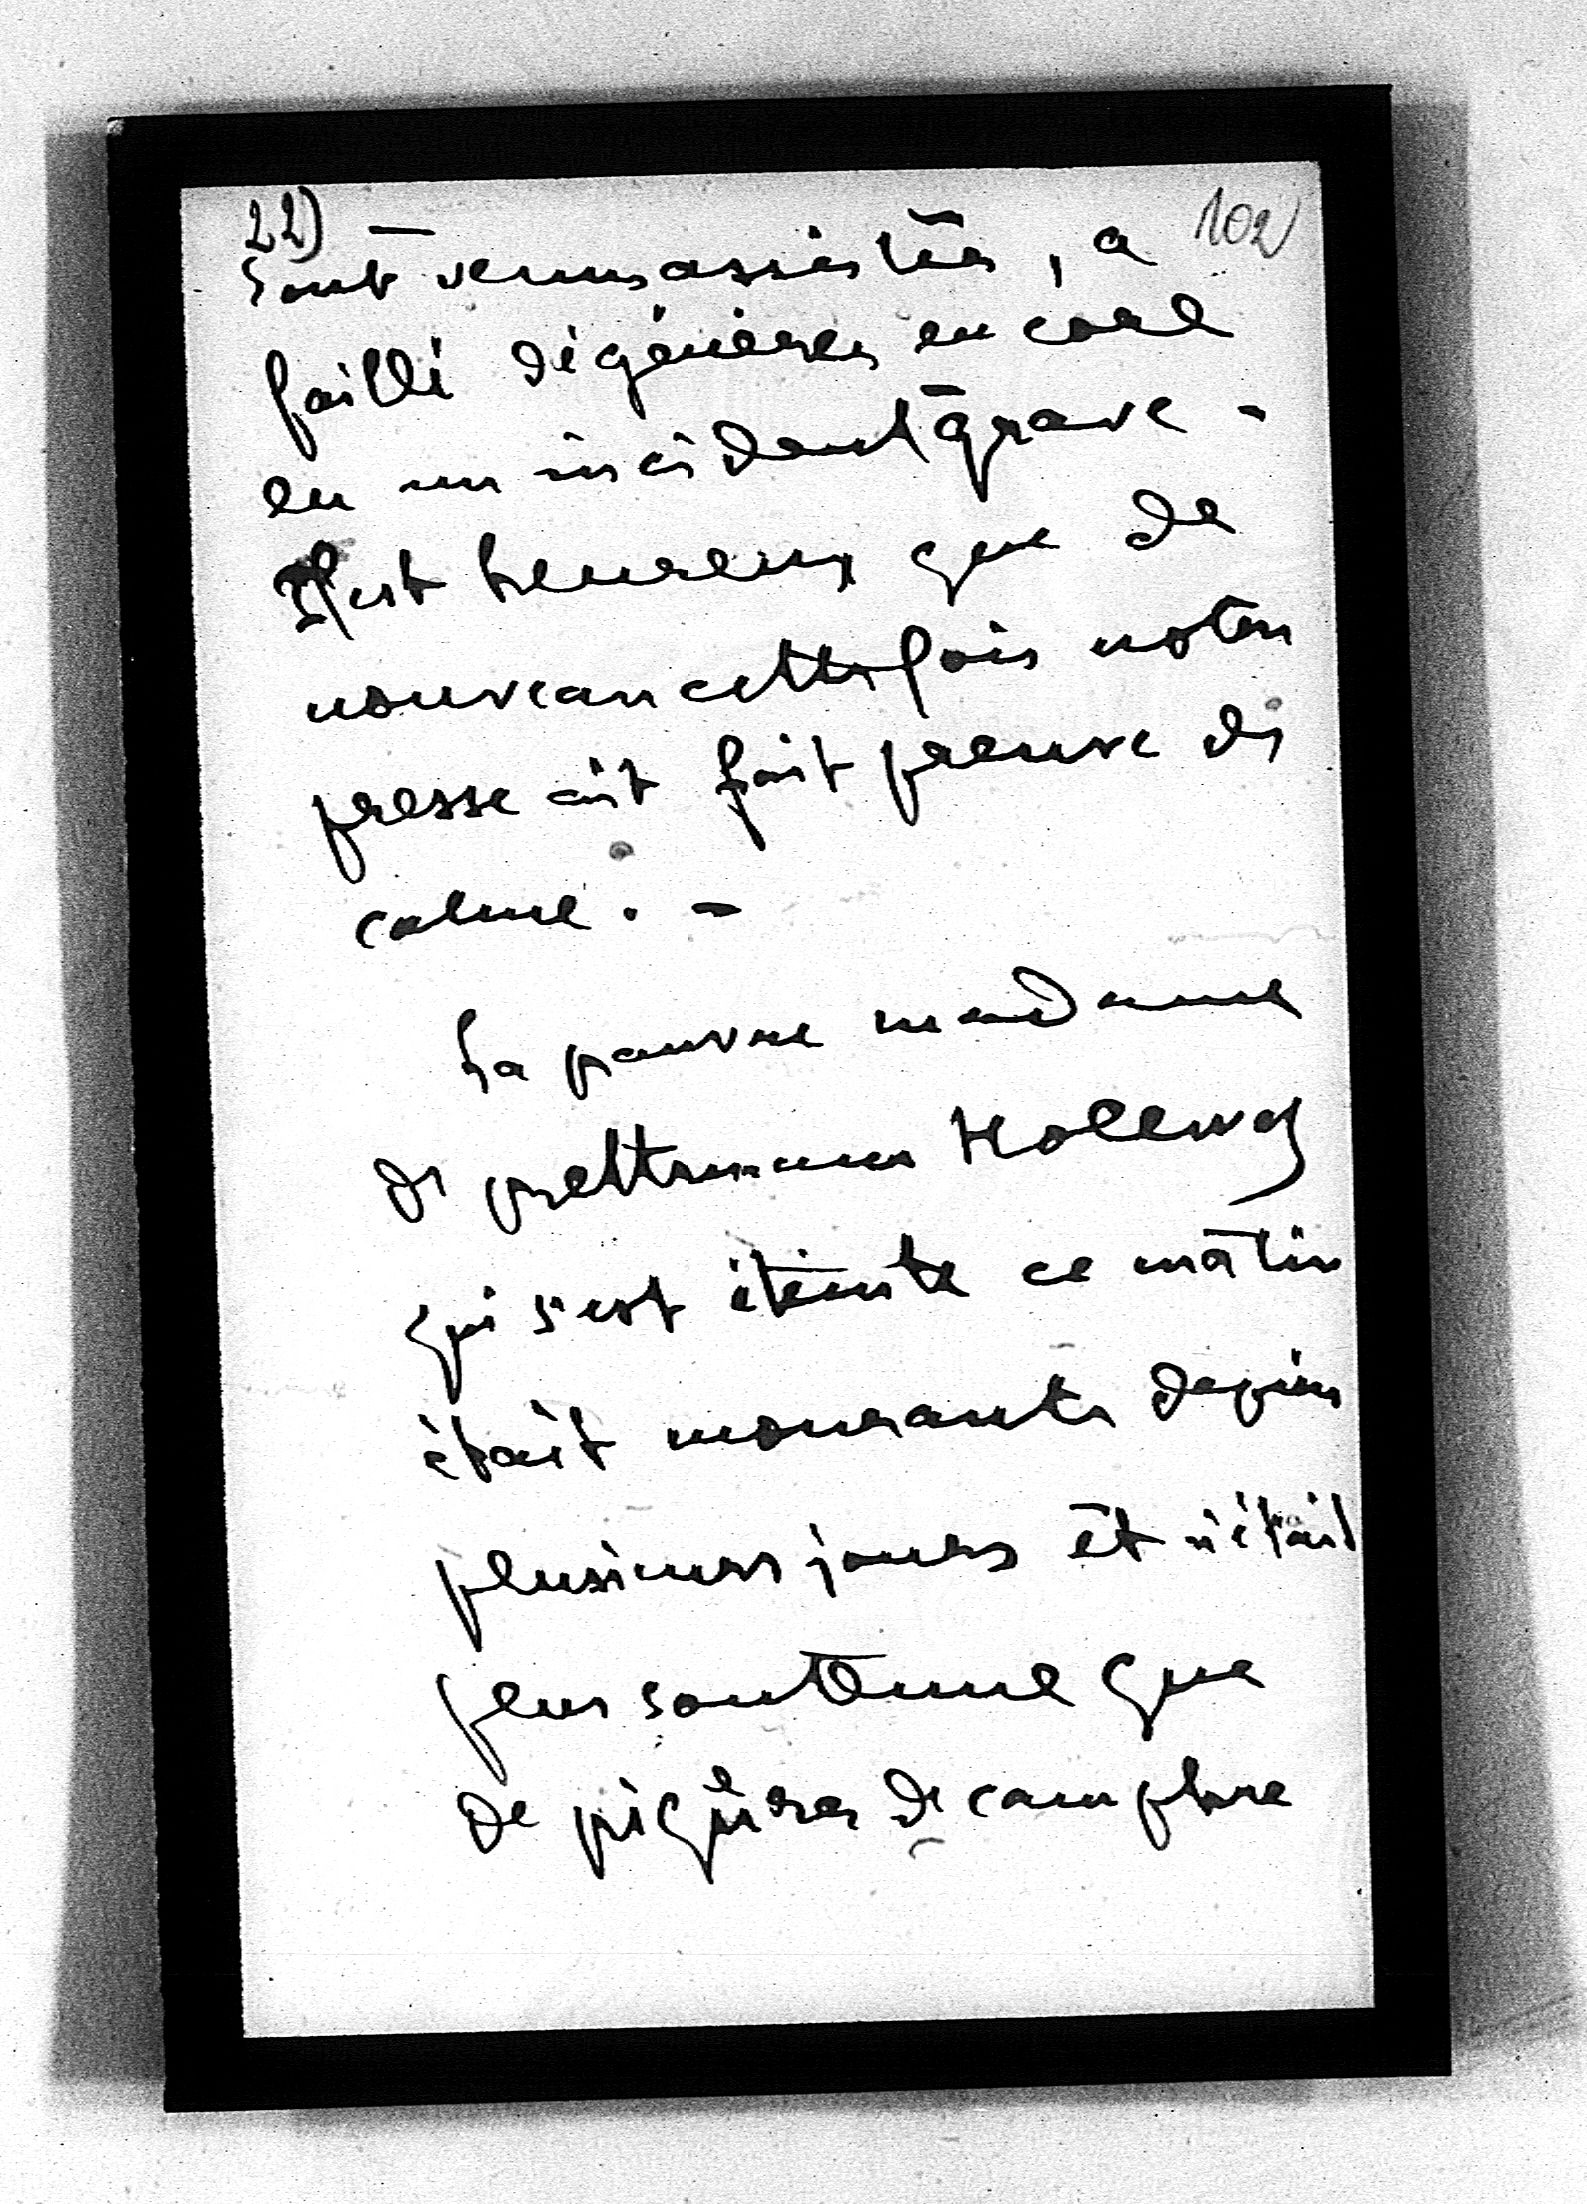 22) 102
sont venus assister, a
failli dégénérer encore
en un incident grave -
Il est heureux que de
nouveau cette fois notre
presse ait fait preuve de
calme. -
La pauvre madame
de prettmann Hollweg
qui s'est éteinte ce matin
était mourante depuis
plusieurs jours et n'était
plus soutenue que
de piqûres de camphre